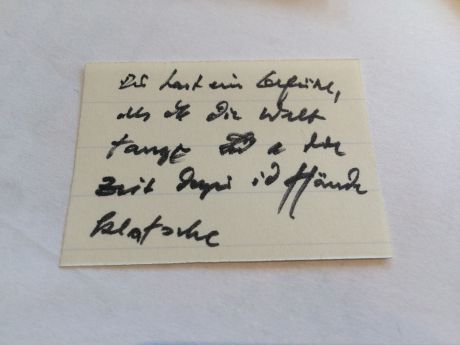 Du hast ein Gefühl,
als ob die Welt
tanze die
Zeit Hände
klatsche